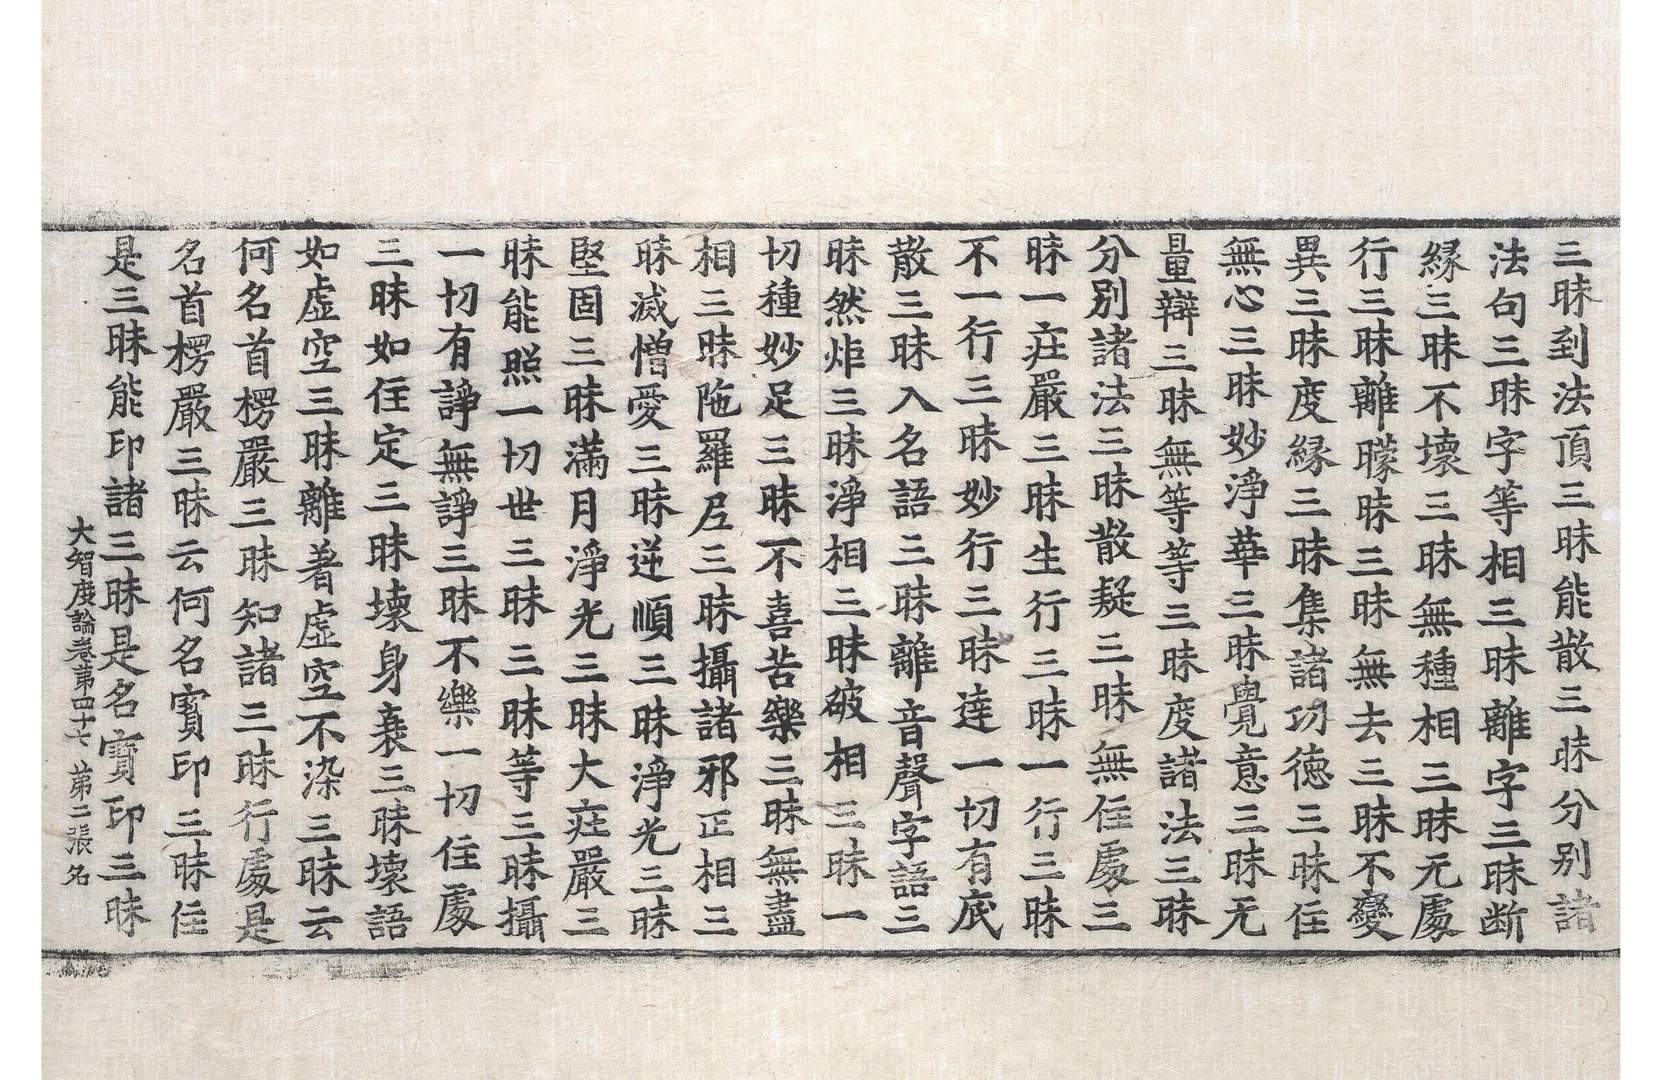 三昧到法頂三昧能散三昧分別諸
法句三昧字等相三昧離字三昧断
縁三昧不壞三昧無種相三昧无處
行三昧離矇昧三昧無去三昧不變
異三昧度縁三昧集諸功德三昧住
無心三昧妙淨華三昧覺意三昧无
量辯三昧無等等三昧度諸法三昧
分別諸法三昧散疑三昧無住處三
昧一疘嚴三昧生行三昧一行三昧
不一行三昧妙行三昧達一切有底
散三昧入名語三昧離音聲字語三
昧然炬三昧淨相三昧破相三昧一
切種妙足三昧不喜苦樂三昧無盡
相三昧陁羅尼三昧攝諸邪正相三
昧滅憎愛三昧逆順三昧淨光三昧
堅固三昧滿月淨光三昧大疘嚴三
昧能照一切世三昧三昧等三昧攝
一切有諍無諍三昧不樂一切住處
三昧如住定三昧壞身衰三昧壞語
如虛空三昧離著虛空不染三昧云
何名首楞嚴三昧知諸三昧行處是
名首楞嚴三昧云何名寶印三昧住
是三昧能印諸三昧是名寶印三昧
大智度論卷第四十七 第二張 名